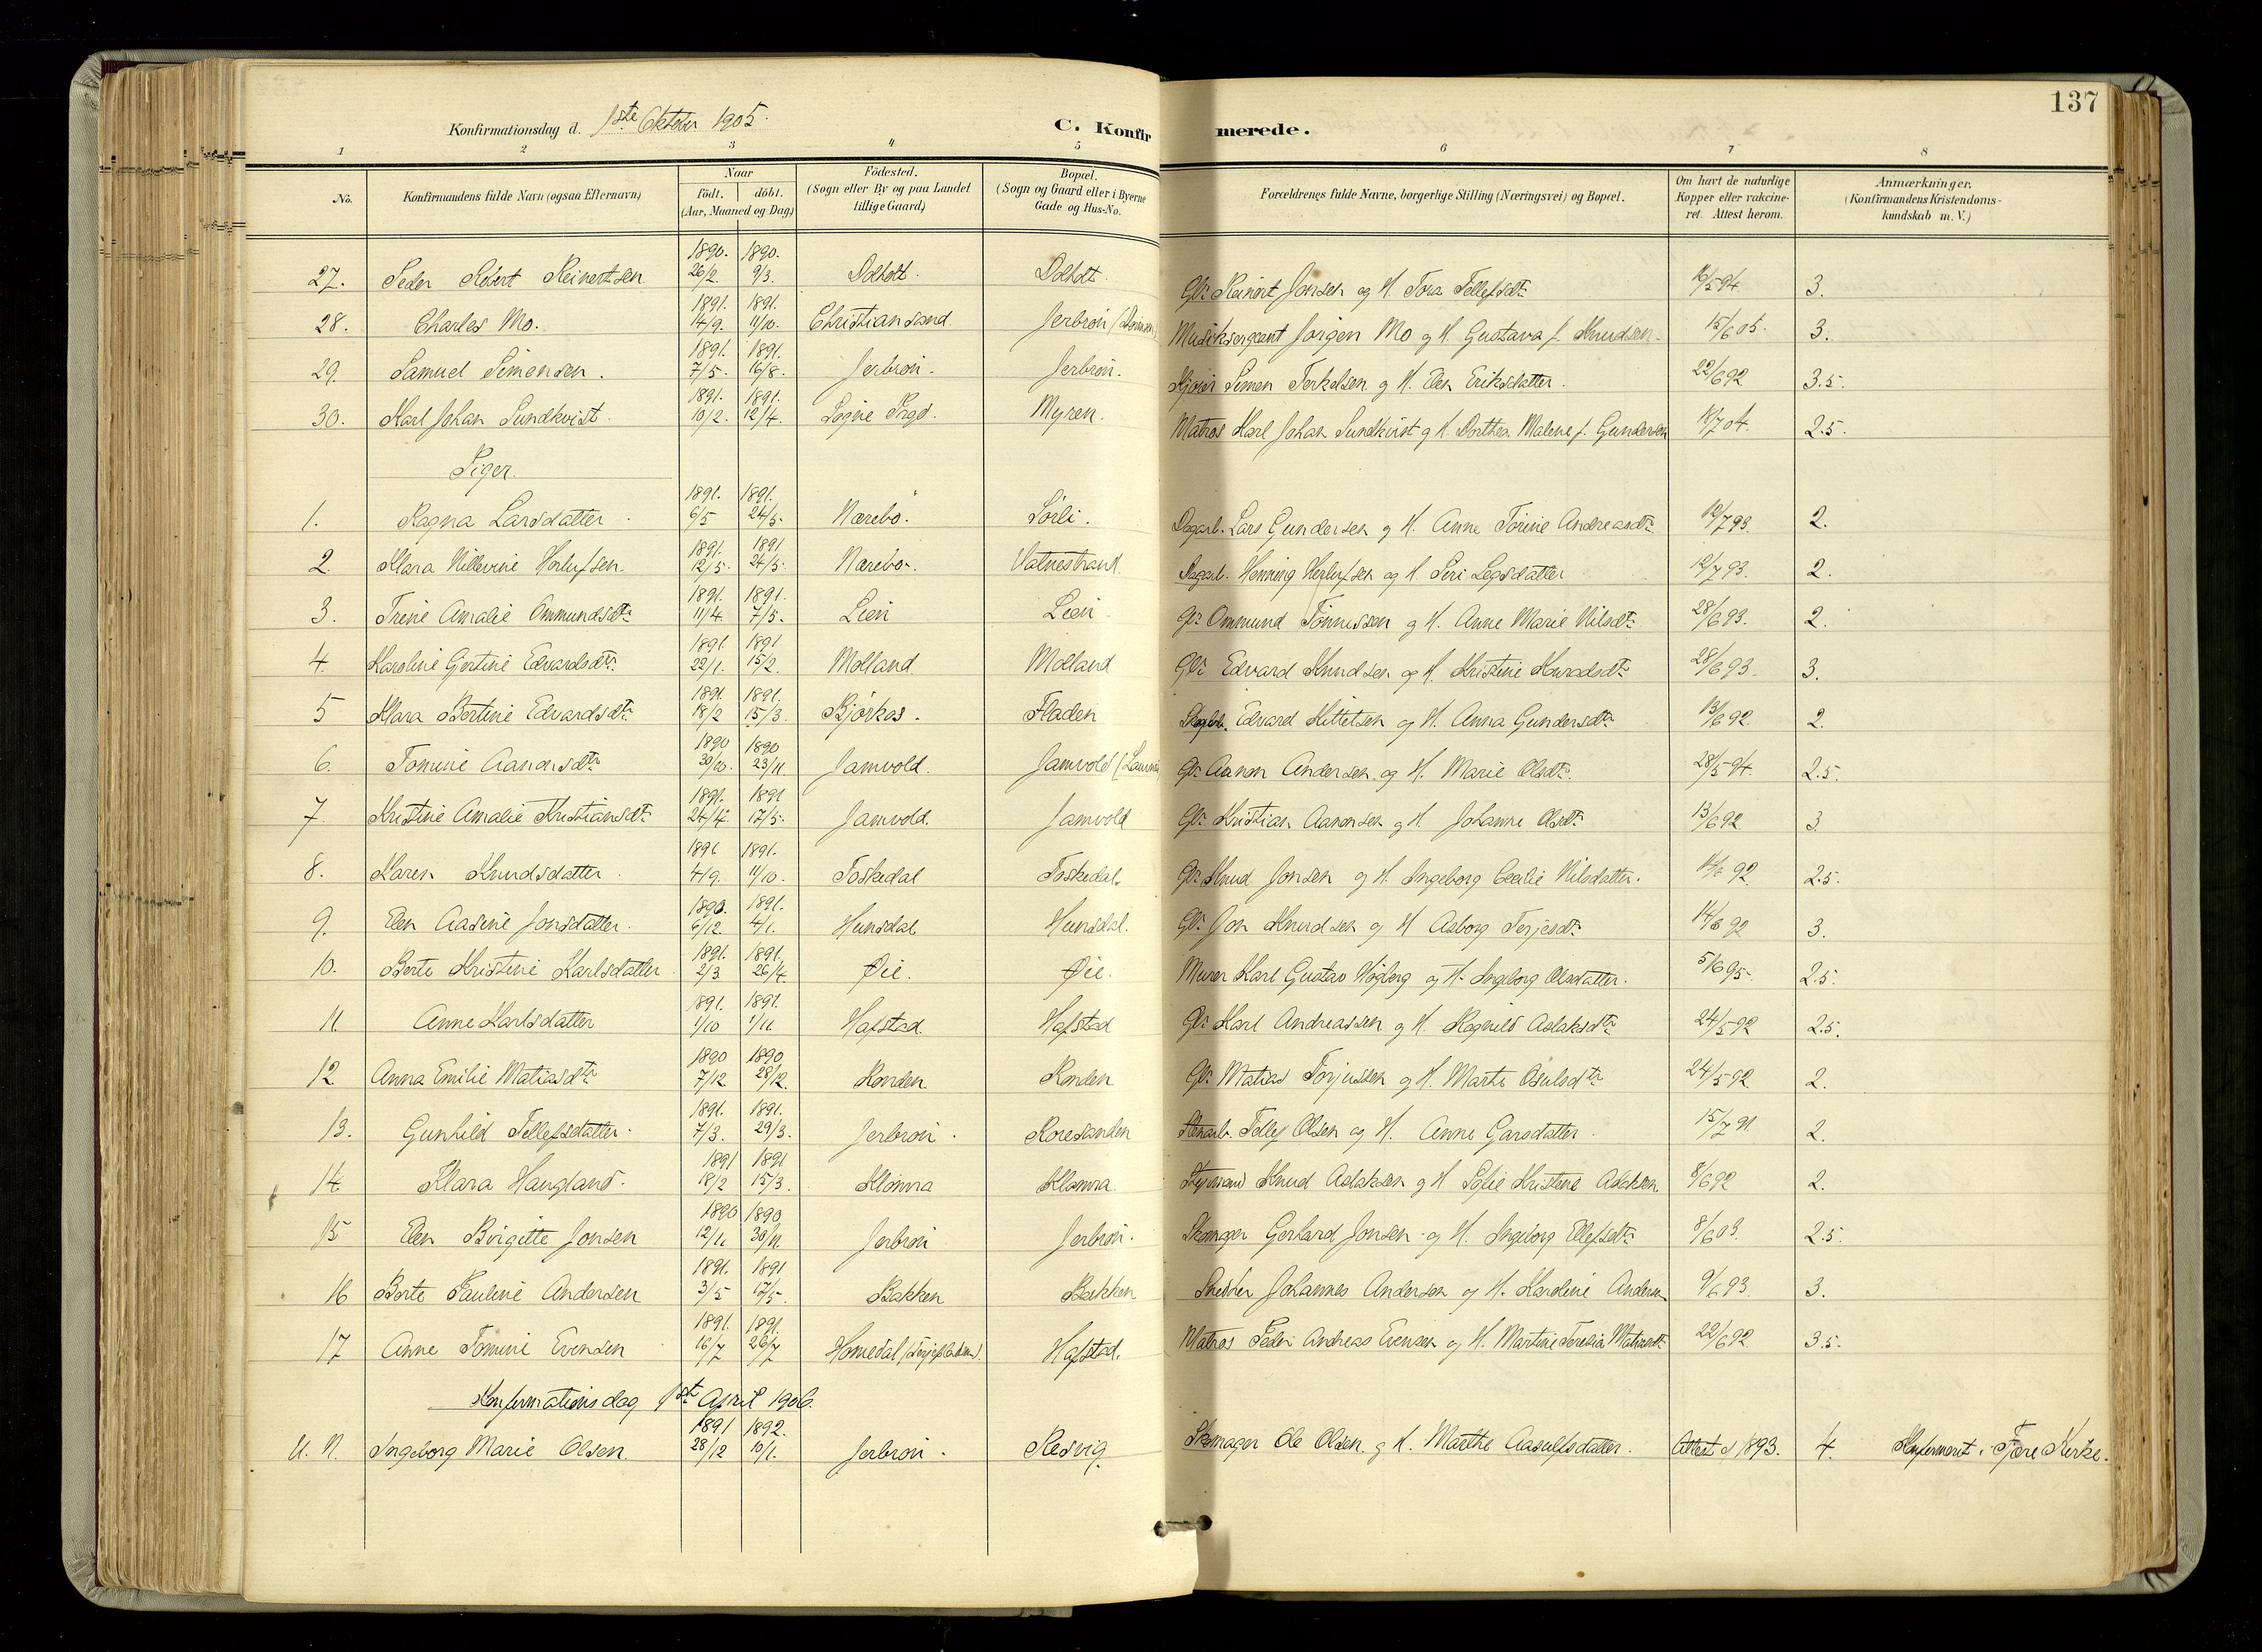 137
Konfirmationsdag d. 1ste Oktober 1905.
C. Konfirmerede.
1 2 3 4 5 6 7 8
No. Konfirmandens fulde Navn (ogsaa Efternavn) Naar født. døbt. (Aar, Maaned og Dag) Fødested. (Sogn eller By og paa Landet tillige Gaard) Bopæl. (Sogn og Gaard eller i Byerne Gade og Hus-No. Forældrenes fulde Navne, borgerlige Stilling (Næringsvei) og Bopæl. Om havt de naturlige Kopper eller vakcineret. Attest herom. Anmærkninger. (Konfirmandens Kristendomskundskab m. V.)
27. Peder Robert Reinertsen 1890. 26/2. 1890. 9/3. Dolholt. Dolholt. Gbr. Reinert Jonsen og H. Tora Tellefsdtr 16/5 94. 3.
28. Charles Mo. 1891. 14/9. 1891. 11/10. Christiansand. Jerbrøn Musiksergeant Jørgen Mo og H. Gustava f. Knudsen. 15/6 05. 3.
29. Samuel Simonsen. 1891. 7/5. 1891. 16/8. Jerbrøn. Jerbrøn. Simon Terkelsen og H. Elen Eriksdatter. 22/6 92 3.5.
30. Karl Johan Sundkvist. 1891. 10/2. 1891. 12/4. Søgne Myren. Matros Karl Johan Sundkvist og H. Dorthea Malene f. Gundersen 2.5.
Piger.
1. Ragna Larsdatter 1891. 6/5 1891. 24/5. Nærebø. Sørli. Dagarb. Lars Gundersen og H. Anne Torine Andreasdtr 12/7 93. 2.
2. Klara Villevine Herlufsen 1891. 12/5. 1891 24/5. Nærebø. Vatnestrand. Dagarb. Henning Herlufsen og H. Siri Legsdatter 12/7 93. 2.
3. Trine Amalie Ommundsdtr 1891. 11/4. 1891. 7/5. Lien Lien Gbr. Ommund Tønnessen og H. Anne Marie Nilsdtr 28/6 93. 2.
4 Karoline Gertine Edvardsdtr 1891 22/1. 1891 15/2. Molland. Molland Gbr. Edvard Knudsen og H. Kristine Konradsdtr 28/6 93. 3.
5 Klara Bertine Edvardsdtr 1891. 18/2 1891. 15/3. Bjørkos. Fladen Edvard Kittelsen og H. Anna Gundersdtr 13/6 92. 2.
6. Tomine Aanonsdtr 1890 30/10. 1890 23/11. Jamvold. Jamvold Gbr. Aanon Andersen og H. Marie Olsdtr. 28/5 94. 2.5.
7. Kristine Amalie Kristiansdtr 1891. 24/4 1891 17/5. Jamvold. Jamvold Gbr. Kristian Aanonsen og H. Johanne Olsdtr 13/6 92. 3.
8. Karen Knudsdatter. 1891 4/9. 1891. 11/10. Toskedal Toskedal. Gbr. Knud Jonsen og H. Ingeborg Cecilie Nilsdatter. 14/6 92. 2.5.
9. Elen Aasine Jonsdatter. 1890. 6/12. 1891. 4/1. Hunsdal Hunsdal. Gbr. Jon Knudsen og H. Aaborg Terjesdtr 14/6 92 3.
10. Berte Kristine Karlsdatter 1891. 2/3 1891. 26/4 Øie. Øie. Murer Karl Gustav Høgberg og H. Ingeborg Olsdatter. 5/6 95. 2.5.
11. Anne Karlsdatter 1891. 1/10 1891. 1/11 Hafstad Hafstad Gbr. Karl Andreassen og H. Ragnild Aslaksdtr 24/5 92 2.5.
12 Anna Emilie Matiasdtr 1890 7/12. 1890 28/12. Konden Konden Gbr. Matias Torjussen og H. Marte Osulsdtr 24/5 92 2.
13. Gunhild Tellefsdatter. 1891. 7/3. 1891. 29/3. Jerbrøn. Roresanden Stenarb. Tellef Olsen og H. Anne Garsdatter. 15/7 91. 2.
14 Klara Haugland. 1891 18/2 1891 15/3. Klømra Klømra. Styrmand Knud Aslaksen og H. Sofie Kristine Aslaksen. 8/6 92 2.
15 Elen Birgitte Jonsen 1890 12/11 1890 30/11. Jerbrøn Jerbrøn. Skomager Gerhard Jonsen og H. Ingeborg Ellefsdtr 8/6 03. 2.5.
16 Berte Pauline Andersen 1891. 3/5 1891 17/5. Bakken Bakken Snedker Johannes Andersen og H. Karoline Andersen 9/6 93. 3.
17 Anne Tomine Evensen 1891. 16/7 1891. 26/7 Homedal Hafstad. Matros Peder Andreas Evensen og H. Martine Teresia 22/6 92. 3.5.
Konfirmationsdag 1ste April 1906.
U. N. Ingeborg Marie Olsen. 1891 28/12 1892. 10/1. Jerbrøn. Resvig Skomager Ole Olsen og H. Marthe Aasulfsdatter. Attest d 1893. 4. Konfirmeret i Fjære Kirke.